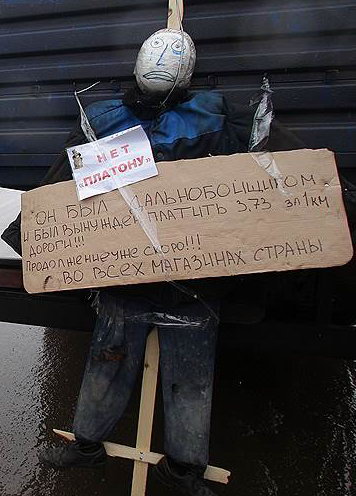 НЕТ
"ПЛАТОНУ"
"ОН БЫЛ ДАЛЬНОБОЙЩИКОМ
И БЫЛ ВЫНУЖДЕН ПЛАТИТЬ 3,73 ЗА 1 КМ
ДОРОГИ!!!
ПРОДОЛЖЕНИЕ УЖЕ СКОРО!!!
ВО ВСЕХ МАГАЗИНАХ СТРАНЫ